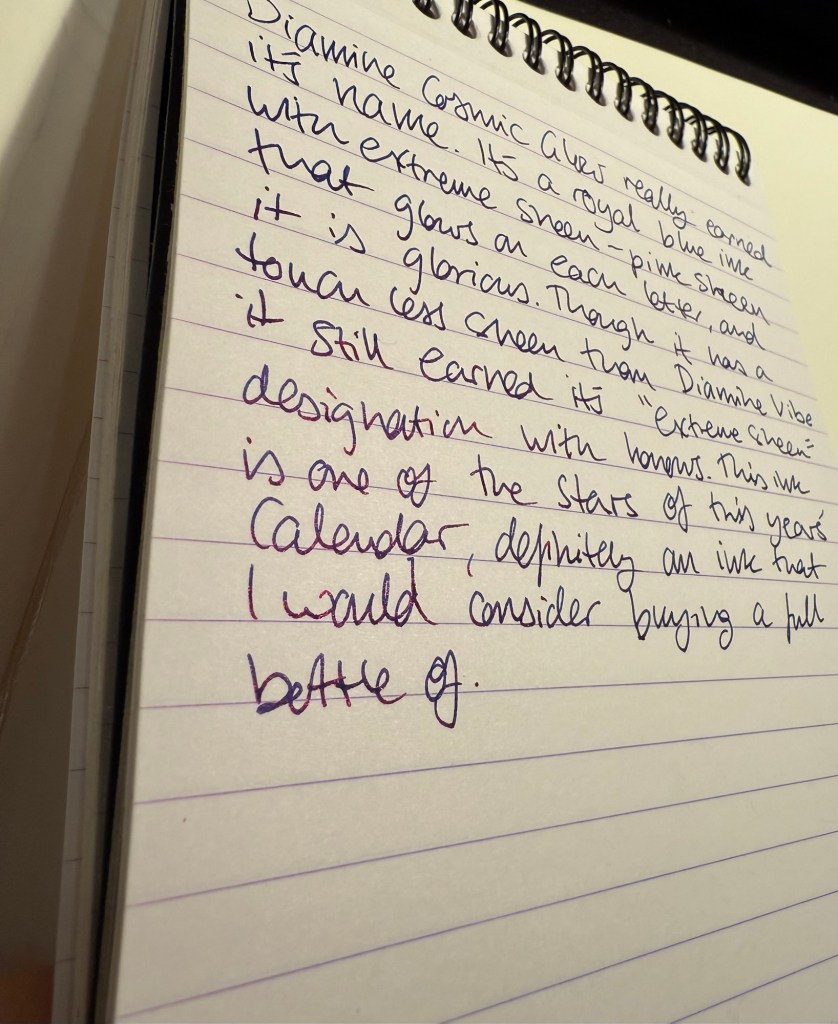 Diamine Cosmic Glow really earned
its name. It's a royal blue ink
with extreme sheen - pink sheen
that glows on each letter, and
it is glorious. Though it has a
touch less sheen than Diamine Vibe
it still earned its "extreme sheen"
designation with honours. This ink
is one of the stars of this years'
Calendar, definitely an ink that
I would consider buying a full
bottle of.